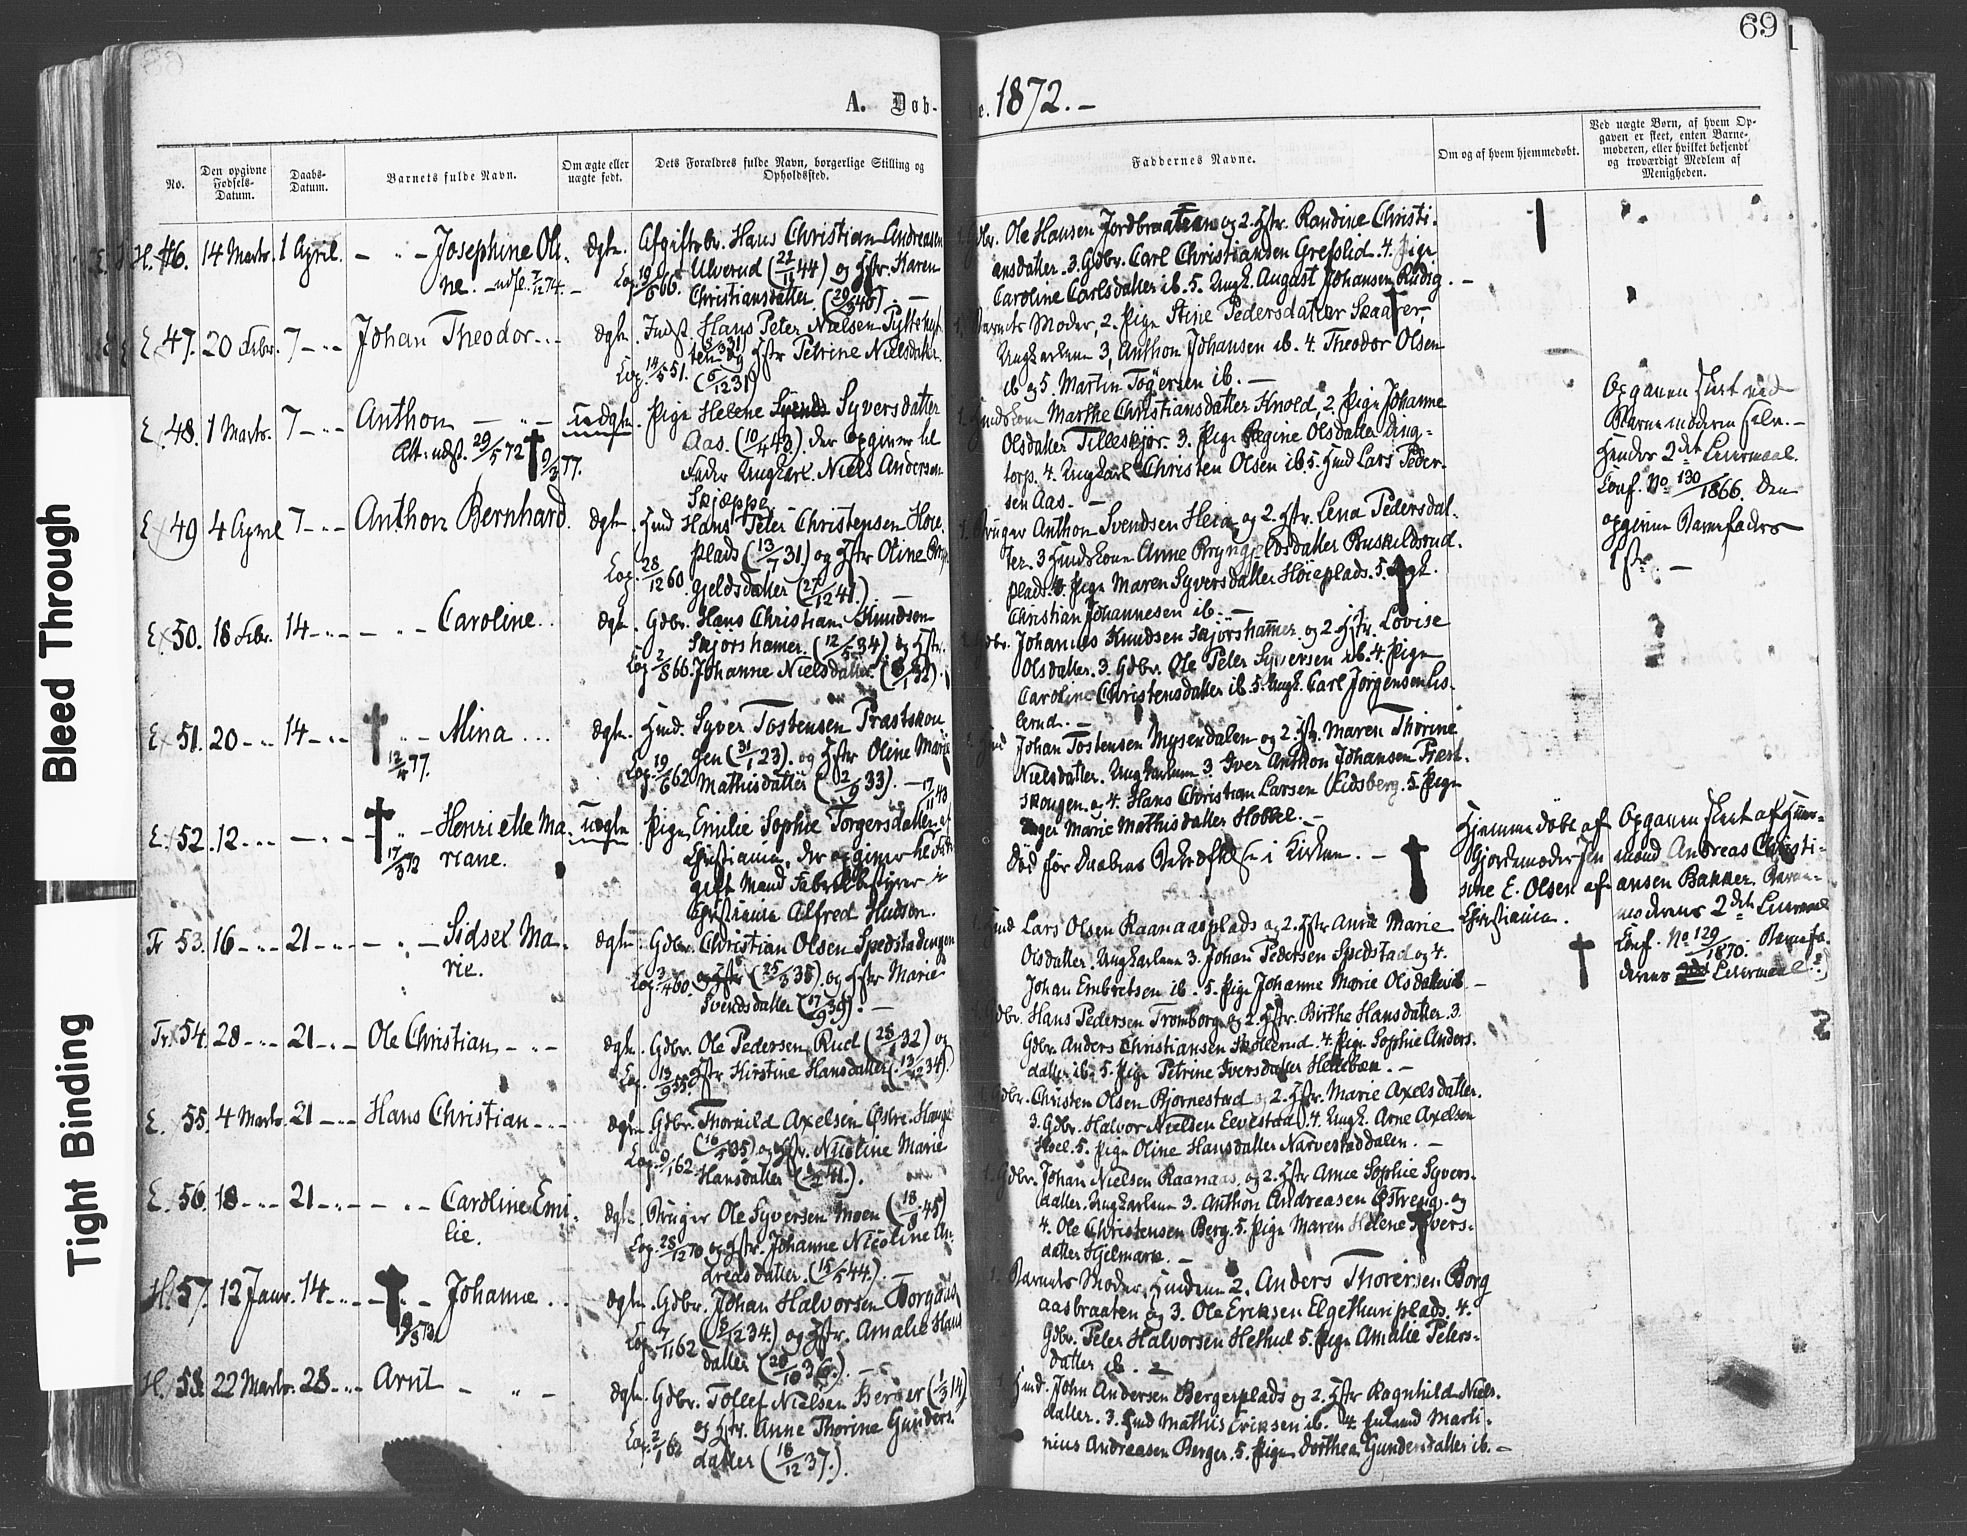 69
A. Døb-
e. 1872. –
No.
Den opgivne Fødsels-Datum.
Daabs-Datum.
Barnets fulde Navn.
Om ægte eller uægte født.
Dets Forældres fulde Navn, borgerlige Stilling og Opholdssted.
Faddernes Navne.
Om og af hvem hjemmedøbt.
Ved uægte Børn, af hvem Op-
gaven er skeet, enten Barne-
moderen, eller hvilket bekjendt
og troværdigt Medlem af
Menigheden.
H. 46. 14 Marts. 1 April. – „ – Josephine Oli-
ne.
ægte. Afgiftsbr. Hans Christian Andreasen
Ulverud (22/11 44) og Hstr. Karen
Cop. 19/6 66. Christiansdatter
1. Gdbr. Ole Hansen Jordbraatran og 2. Hstr. Randine Christi-
ansdatter. 3. Gdbr. Carl Christiansen Grefslid. 4. Pige
Caroline Carlsdatter ib. 5. Ungk. August Johansen Rudsg. –
E. 47. 20 Febr. 7 – „ – Johan Theodor. –
ægte. Indst. Hans Peter Nielsen
og Hstr. Petrine Nielsdatter
Cop. 14/5 51. (6/12 31)
1. Barnets Moder, 2. Pige Stine Pedersdatter Skaarer
Ungkarlene 3, Anthon Johansen ib. 4. Theodor Olsen
ib og 5. Martin Tøgersen ib. –
E. 48. 1 Marts. 7 – „ – Anthon – „ –
Att: udst. 29/5 72 † 9/3 77.
uægte. Pige Helene Syversdatter
Aas. (10/4 43.) der opgiver til
Fader Ungkarl. Niels Andersen
Skjæppe.
1. Huuskone Marthe Christiansdatter Knold, 2. Pige Johanne
Olsdatter Tilleskjør. 3. Pige Regine Olsdatter Ung-
torp. 4. Ungkarl Christen Olsen ib. 5. Hmd Lars Peder-
sen Aas. –
Opgaven skeet ved
Barnemoderen selv. –
Hendes 2det Leiermaal.
Conf. No 130/1866. Den
opgivne Barnefaders
E 49 4 April 7 – „ – Anthon Bernhard.
ægte. Hmd Hans Peter Christensen Høie-
plads (13/7 31) og Hstr Oline Bryn-
Cop. 28/12 60. gjeldsdatter (27/12 41.) –
1. Bruger Anthon Svendsen Heia og 2. Hstr. Lena Pedersdat-
ter. 3 Huuskone Anne Bryngjeldsdatter Buskuldsrud-
plads. 4. Pige Maren Syversdatter Høieplads. 5. Ungk.
Christian Johannesen ib. –
E. 50. 18 Febr. 14 – „ – – „ – Caroline. .
ægte. Gdbr. Hans Christian Knudsen
Skjørshamer. (12/5 34) og Hstr.
Johanne Nielsdatter.
1. Gdbr. Johannes Knudsen Skjörshamer. og 2. Hstr. Lovise
Olsdatter. 3. Gdbr. Ole Peter Syversen ib. 4. Pige
Caroline Christensdatter ib. 5. Ungk. Carl Jørgensen Lis-
lerud. –
E. 51. 20 – „ – 14 – „ – † „ – Mina . . .
12/4 77.
ægte. Hmd. Syver Tostensen Præstskou-
gen (31/1 23). og Hstr Oline Marie
Cop. 19/6 62 Mathisdatter (2/9 33). –
1. Hmd Johan Tostensen Mysendalen og 2. Hstr. Maren Thorine
Nielsdatter. Ungkarlene 3. Iver Anthon Johansen Præst-
skougen. og 4. Hans Christian Larsen (Eidsberg. 5. Pige
Inger Marie Mathisdatter Hobbel. –
E. 52. 12 – „ – – „ – † – „ – Henriette Ma-
17/3 72 riane.
uægte. Pige Emilie Sophie Torgersdatter af
Christiania. Der opgiver til Fader
gift Mand Fabrikbestyrer i
Christiania Alfred Hudson.
Død før Daabens Bekræftelse i Kirken. – †
Hjemmedøbt af
Gjordemoder Jen-
sine E. Olsen af
Christiania.
Opgaven skeet af Huus-
mand Andreas Christi-
ansen Bakker. Barne-
moderens 2det Leiermaal
Conf. No 129/1870. Barnefa-
derens Leiermaal ?)
Tr 53. 16 – „ – 21 – „ – – „ – Sidsel Ma-
rie.
ægte. Gdbr. Christian Olsen Spedstadengen
(25/3 35) og Hstr Marie
Cop. 3/4 60. Svendsdatter (17/9 39). –
1. Hmd Lars Olsen Raanaasplads og 2. Hstr Anne Marie
Olsdatter. Ungkarlene 3. Johan Pedersen Spedstad og 4.
Johan Embretsen ib. 5. Pige Johanne Marie Olsdatter ib –
Tr. 54. 28 – „ – 21 – „ – Ole Christian – „ –
ægte. Gdbr. Ole Pedersen Rud (28/1 32) og
Cop. 13/9 55. Hstr Kirstine Hansdatter (13/12 34).
1. Gdbr. Hans Pedersen Tromborg og 2. Hstr. Birthe Hansdatter. 3.
Gdbr. Anders Christiansen Skøllerud. 4. Pige Sophie Anders-
datter ib. 5. Pige Petrine Iversdatter Hellebæn. –
E. 55. 4 Marts. 21 – „ – Hans Christian – –
ægte. Gdbr. Thorvild Axelsen Østre. Hauge
og Hstr. Nicoline Marie
Hansdatter
1. Gdbr. Christen Olsen Bjørnestad og 2. Hstr. Marie Axelsdatter.
3. Gdbr. Halvor Nielsen Eevestad. 4. Ungk. Arne Axelsen
Hoel. 5. Pige Oline Hansdatter Narvestaddalen. –
E. 56. 18 – „ – 21 – „ – – „ – Caroline Emi-
lie.
ægte. Bruger Ole Syversen Moen (18/8 45)
Cop. 28/12 70 og Hstr. Johanne Nicoline An-
dreasdatter. (15/5 44.) –
1. Gdbr. Johan Nielsen Raanaas og 2. Hstr Anne Sophie Syvers-
datter. Ungkarlene 3. Anthon Andreasen Østreng. og
4. Ole Christensen Berg. 5. Pige Maren Helene Syvers-
datter Hjelmark. –
H. 57. 12 Janr. 14. – „ – † „ – Johanne . .
ægte. Gdbr. Johan Halvorsen Borgaas
(8/12 34.) og Hstr. Amalie Hans-
Cop. 7/11 62 datter (20/10 36.). –
1. Barnets Moder, Huusm. 2. Anders Thorersen Borg-
aasbraaten og 3. Ole Eriksen Elgethunplads. 4.
Gdbr. Peter Halvorsen Hethul 5. Pige Amalie Peters-
datter ib. –
H. 58. 22 Marts. 28. – „ – Arnt – „ –
ægte. Gdbr. Tollef Nielsen Berger
og Hstr. Anne Thorine Gunders-
datter (18/12 37.).
1 Hmd. John Andersen Bergerplads og 2. Hstr Ragnhild Niels-
datter. 3. Hmd Mathis Eriksen ib. 4. Enkemd Marti-
nius Andreasen Berger. 5. Pige Dorthea Gundersdatter ib. –
Bleed Through
Tight Binding